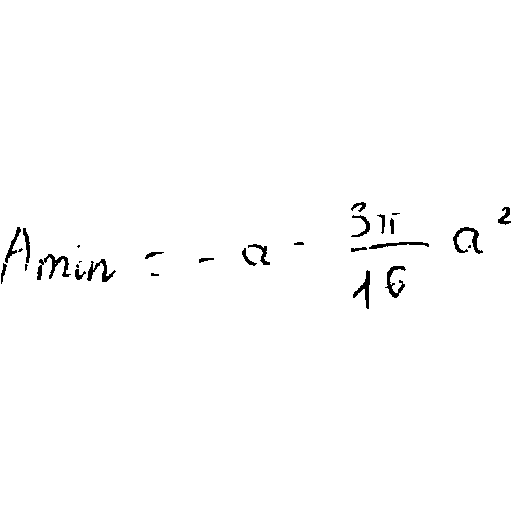 A_min = - a - \frac{3π}{16} a²